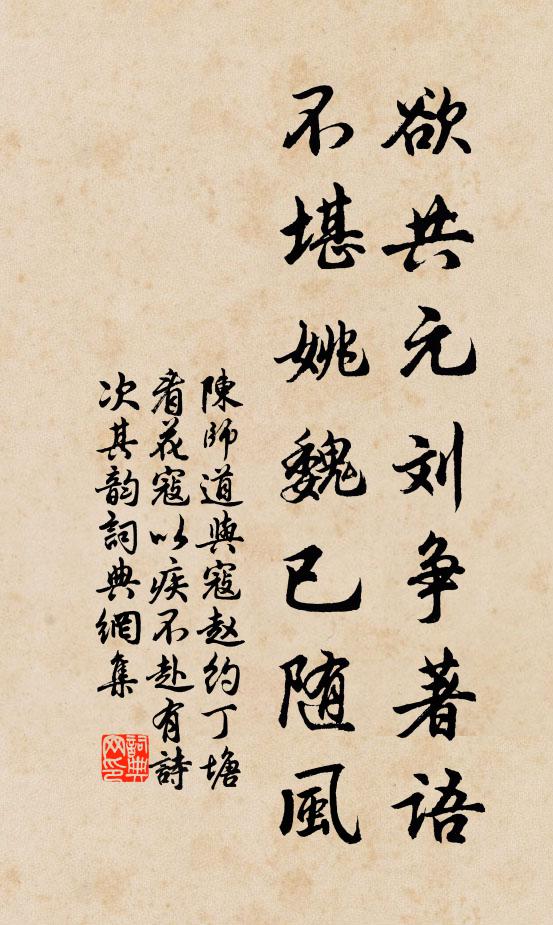 欲共元刘争著语
不堪姚魏已随風
陳師道與寇赵约丁塘
看花寇以疾不赴有詩
次其韵詞典網集
詞典网印